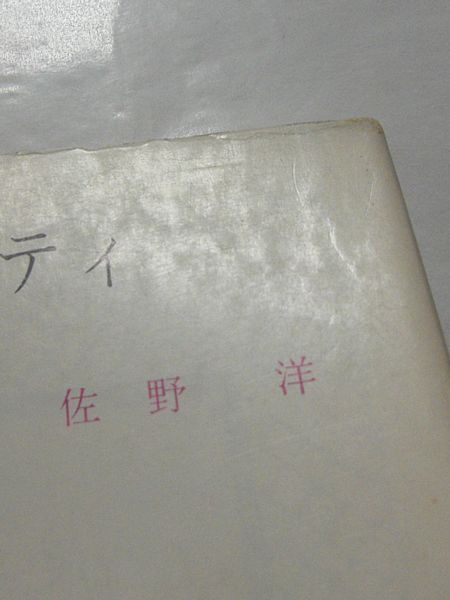 ティ
佐野 洋